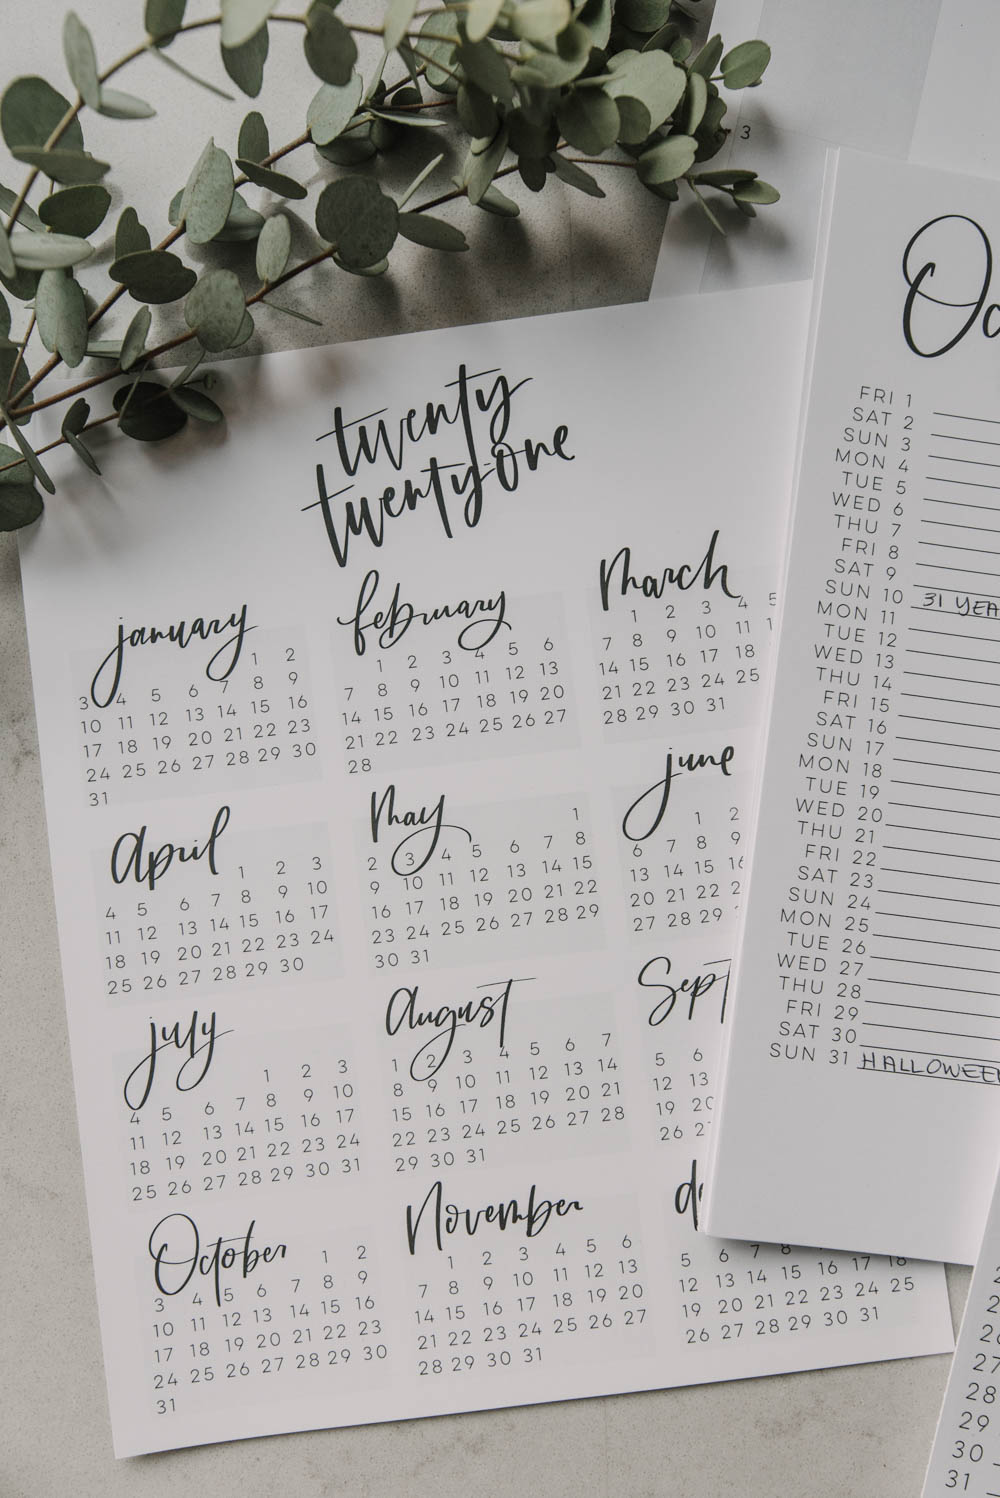 3
twenty
twentyone
january
1 2
3 4 5 6 7 8 9
10 11 12 13 14 15 16
17 18 19 20 21 22 23
24 25 26 27 28 29 30
31
february
1 2 3 4 5 6
7 8 9 10 11 12 13
14 15 16 17 18 19 20
21 22 23 24 25 26 27
28
march
1 2 3 4 5
7 8 9 10 11
14 15 16 17 18
21 22 23 24 25
28 29 30 31
april
1 2 3
4 5 6 7 8 9 10
11 12 13 14 15 16 17
18 19 20 21 22 23 24
25 26 27 28 29 30
may
1
2 3 4 5 6 7 8
9 10 11 12 13 14 15
16 17 18 19 20 21 22
23 24 25 26 27 28 29
30 31
june
1 2
6 7 8 9
13 14 15
20 21 22
27 28 29
july
1 2 3
4 5 6 7 8 9 10
11 12 13 14 15 16 17
18 19 20 21 22 23 24
25 26 27 28 29 30 31
August
1 2 3 4 5 6 7
8 9 10 11 12 13 14
15 16 17 18 19 20 21
22 23 24 25 26 27 28
29 30 31
Sept
5 6
12 13
19
26
October
1 2
3 4 5 6 7 8 9
10 11 12 13 14 15 16
17 18 19 20 21 22 23
24 25 26 27 28 29 30
31
November
1 2 3 4 5 6
7 8 9 10 11 12 13
14 15 16 17 18 19 20
21 22 23 24 25 26 27
28 29 30 31
d
5 6 7 8
12 13 14 15 16 17 18
19 20 21 22 23 24 25
26 27 28 29 30 31
Oc
FRI 1
SAT 2
SUN 3
MON 4
TUE 5
WED 6
THU 7
FRI 8
SAT 9
SUN 10 31 YEA
MON 11
TUE 12
WED 13
THU 14
FRI 15
SAT 16
SUN 17
MON 18
TUE 19
WED 20
THU 21
FRI 22
SAT 23
SUN 24
MON 25
TUE 26
WED 27
THU 28
FRI 29
SAT 30
SUN 31 HALLOWEEN
27
28
29
30
31